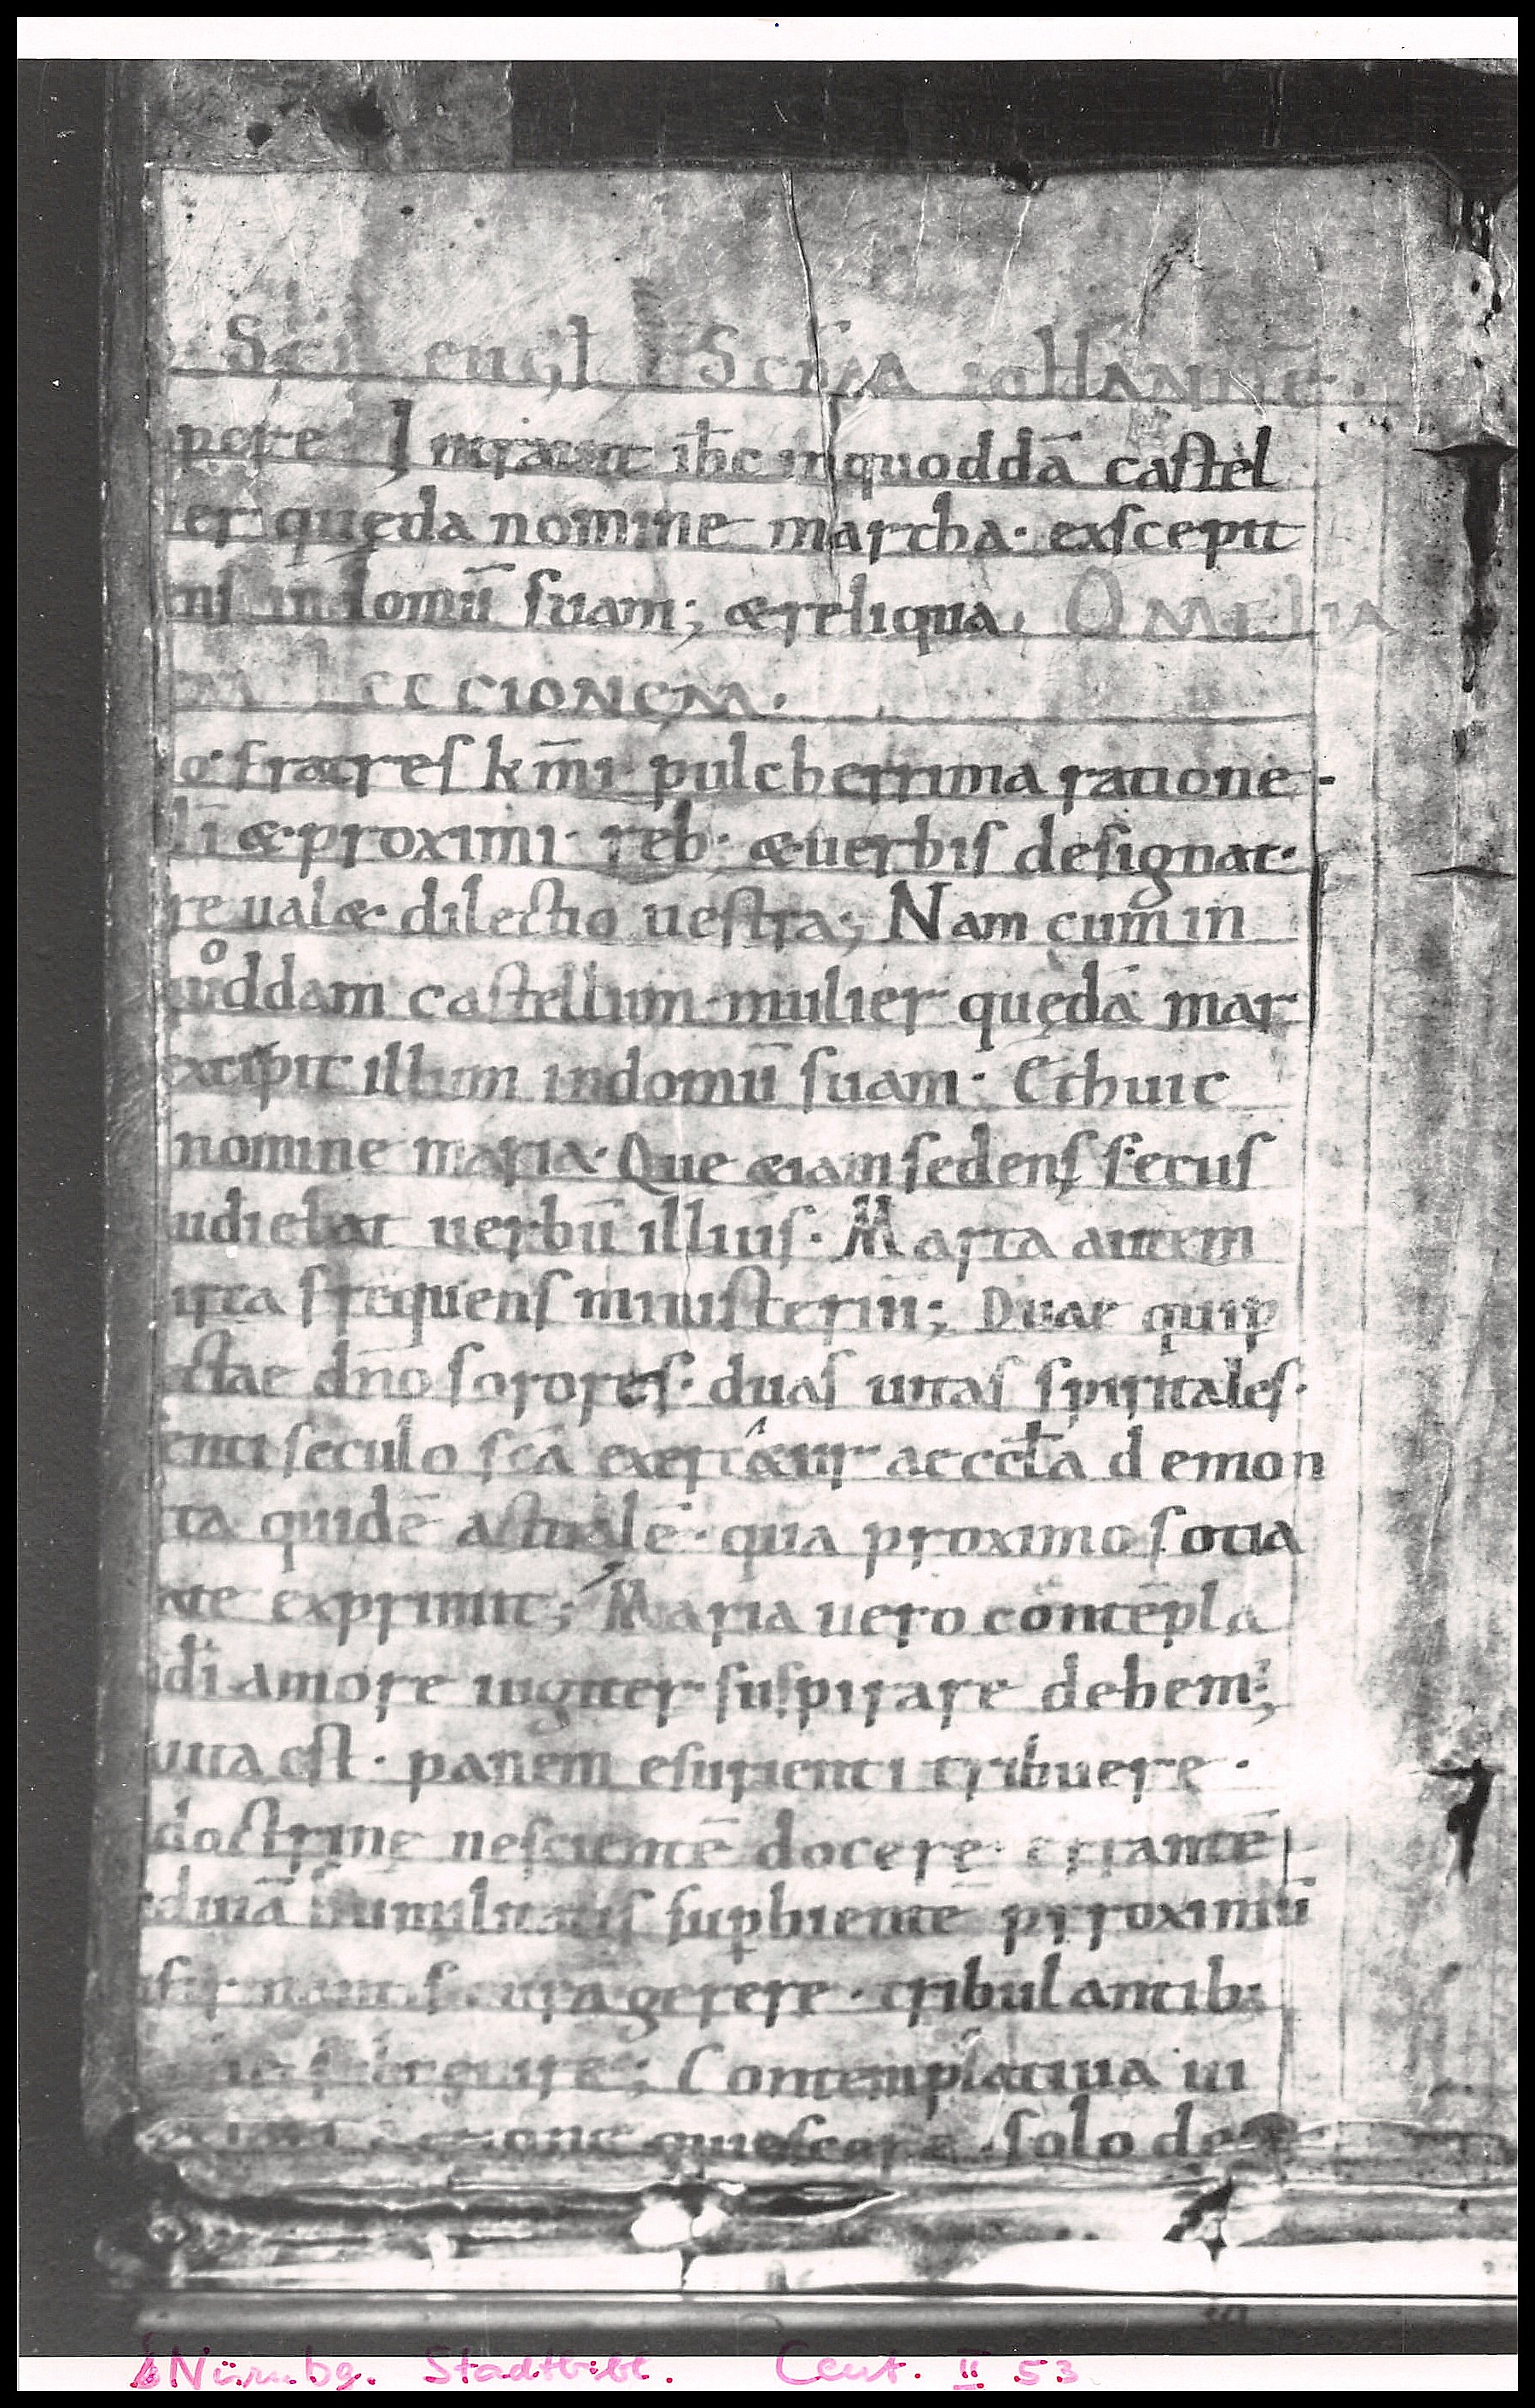 Sci eugl Scdm ioHANNē.
pore Intrauit ihc inquoddā castel
ter quęda nomine martha· exscepit
ns in domū suam; & reliqua. OMELIA
M LECCIONEM.
o· fratres k̄mi pulcherrima ratione·
& proximi· reb· & uerbis designat·
re ual& dilectio uestra; Nam cum in
uoddam castellum· mulier quędā mar
excipit illum indomū suam· Ethuic
nomine maria· Que &iam sedens secus
udiebat uerbū illius· Marta autem
irca frequens ministeriū; Duae quip
ctae dn̄o sorores· duas uitas spiritales·
enti seculo scā exerc&ur aeccl̄a demon
ta quidē actualē· qua proximo socia
ate exprimit; Maria uero contēpla
di amore iugiter suspirare debem;
uita est· panem esurienti tribuere·
doctrine nescientē docere· errantē
uiā humilitatis supbientē prroximū
infirmant curagerere· tribulantib;
Contemplatiua ui
actione quiescere· solo de
Nürnbg. Stadtbibl. Cent. II 53